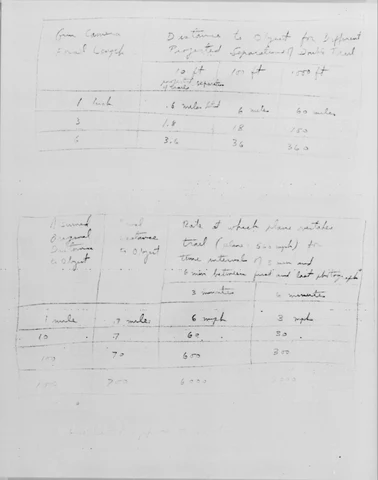 Gun Camera
Focal Length
Distance to Object for Different
Projected Separations of Trail
10 ft
100 ft
1000 ft
projected separation
of tracks
1 inch
.6 miles
6 miles
60 miles
3
1.8
18
180
6
3.6
36
360
Assumed
Original
Distance
to Object
Final
Distance
to Object
Rate at which plane overtakes
trail (plane: 500 mph) for
time intervals of 3 min and
6 min between first and last photograph
3 minutes
6 minutes
1 mile
.7 mile
6 mph
3 mph
10
7
60
30
100
70
600
300
1000
700
6000